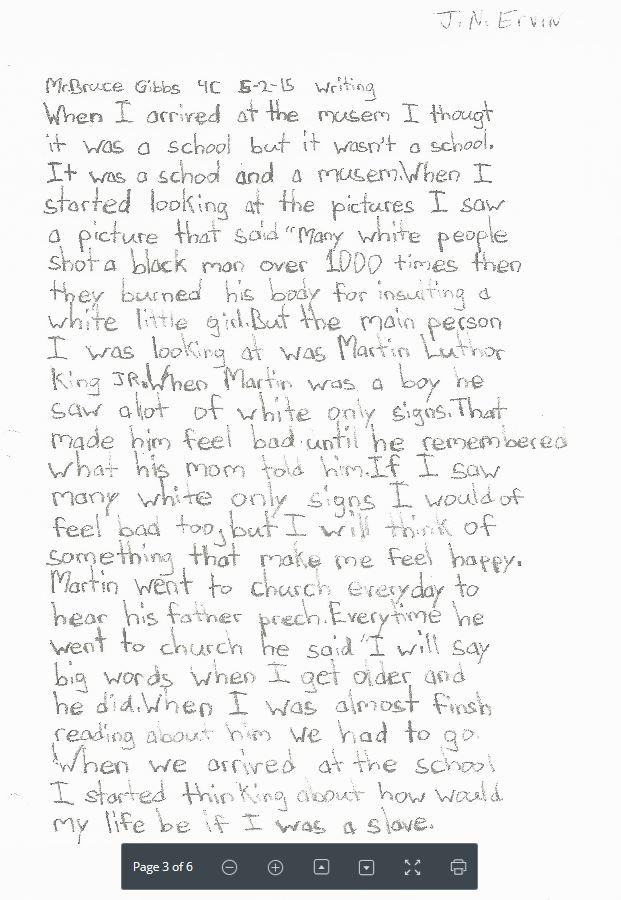 J. N. ERVIN
McBruce Gibbs 4C 5-2-15 Writing
When I arrived at the musem I thougt
it was a school but it wasn't a school.
It was a school and a musem.When I
started looking at the pictures I saw
a picture that said "Many white people
shot a black man over 1000 times then
they burned his body for insulting a
white little girl.But the main person
I was looking at was Martin Luthor
King JR.When Martin was a boy he
saw alot of white only signs.That
made him feel bad until he remembered
what his mom told him.If I saw
many white only signs I would of
feel bad too, but I will think of
something that make me feel happy.
Martin went to church everyday to
hear his father prech.Everytime he
went to church he said "I will say
big words when I get older and
he did.When I was almost finsh
reading about him we had to go.
When we arrived at the school
I started thinking about how would
my life be if I was a slave.
Page 3 of 6